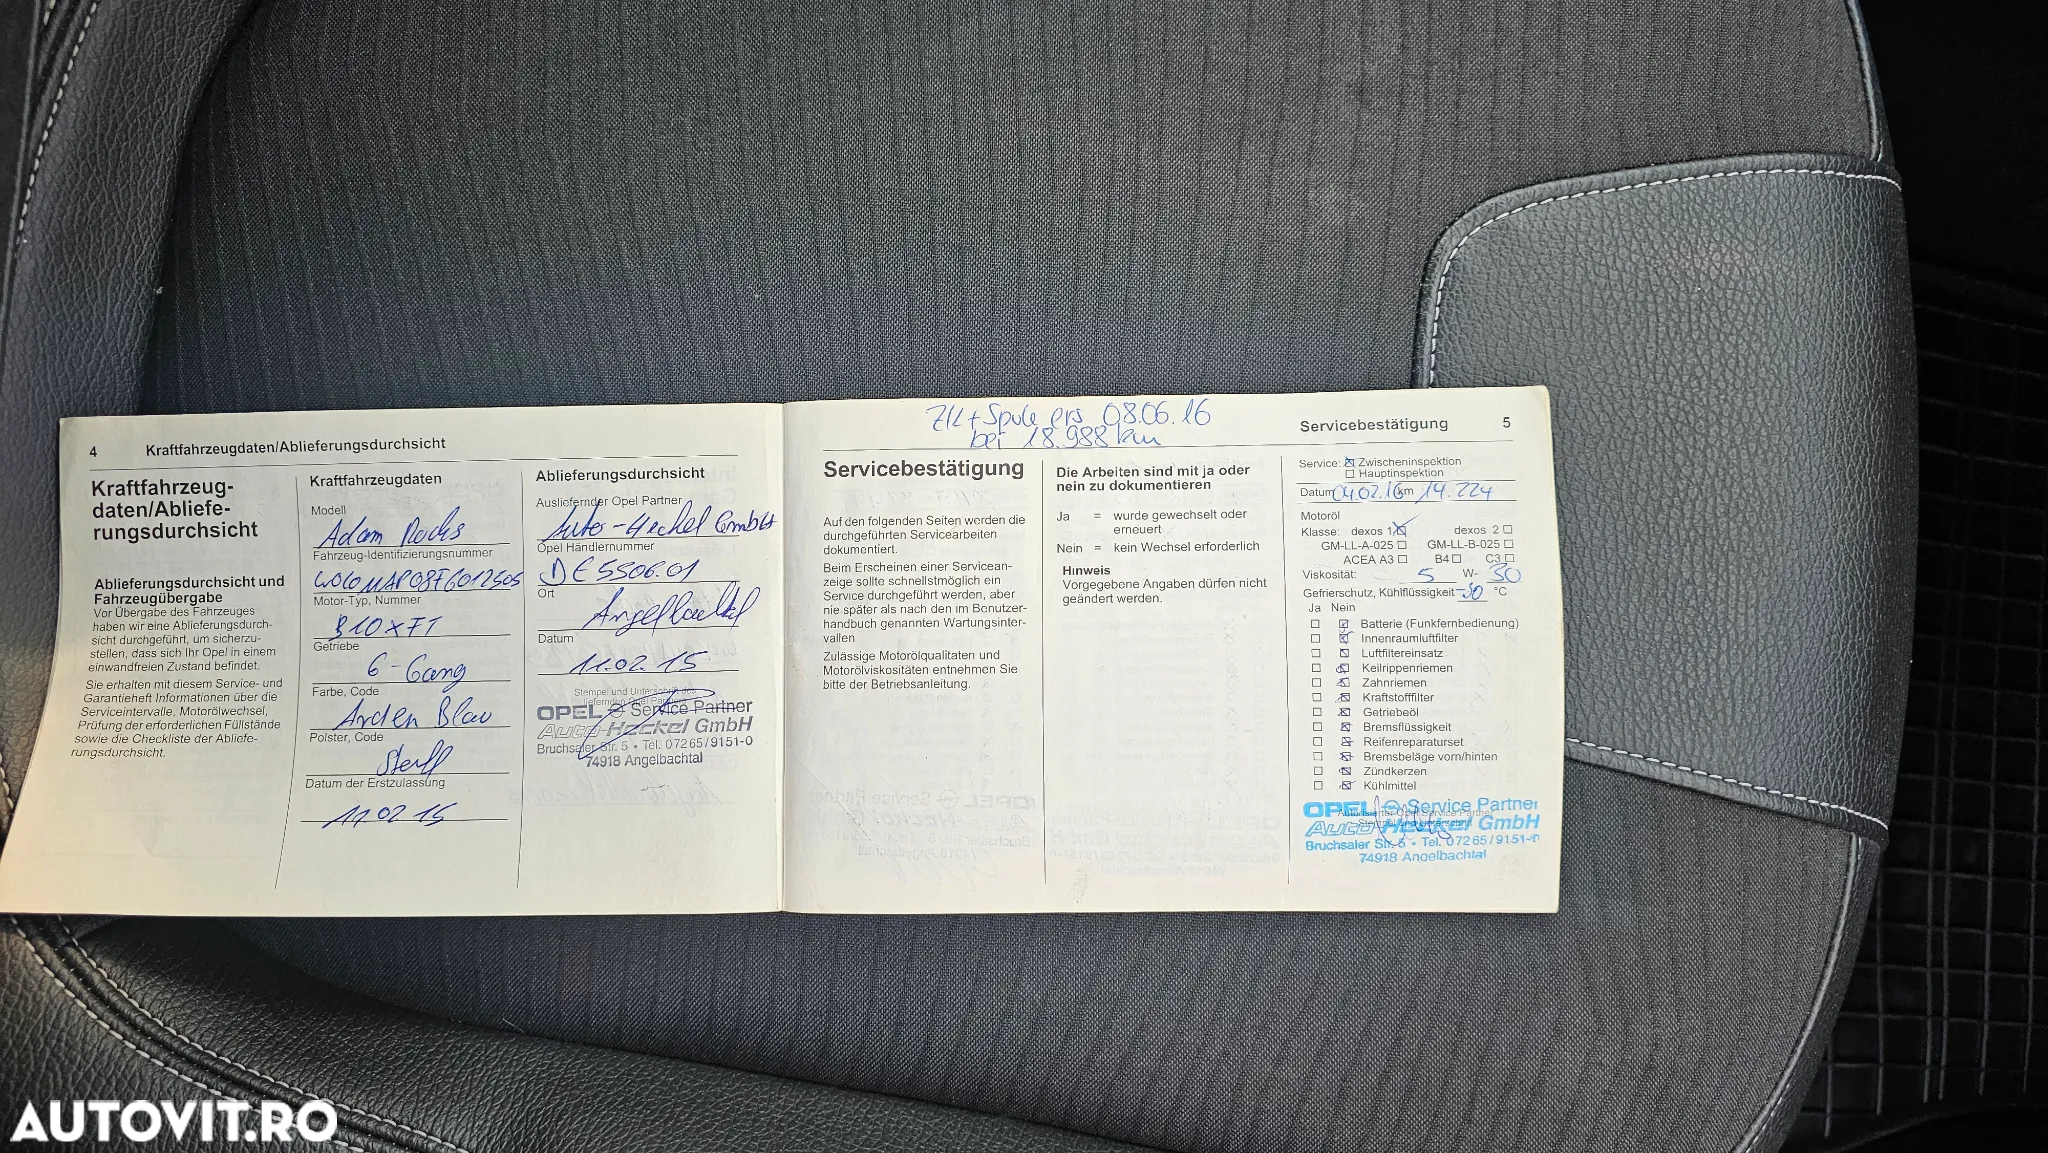 4 Kraftfahrzeugdaten/Ablieferungsdurchsicht
Kraftfahrzeug-
daten/Abliefe-
rungsdurchsicht
Ablieferungsdurchsicht und
Fahrzeugübergabe
Vor Übergabe des Fahrzeuges
haben wir eine Ablieferungsdurch-
sicht durchgeführt, um sicherzu-
stellen, dass sich Ihr Opel in einem
einwandfreien Zustand befindet.
Sie erhalten mit diesem Service- und
Garantieheft Informationen über die
Serviceintervalle, Motorölwechsel,
Prüfung der erforderlichen Füllstände
sowie die Checkliste der Abliefe-
rungsdurchsicht.
Kraftfahrzeugdaten
Modell
Adam Rocks
Fahrzeug-Identifizierungsnummer
Motor-Typ, Nummer
B10XFT
Getriebe
6-Gang
Farbe, Code
Arden Blau
Polster, Code
Stoff
Datum der Erstzulassung
11.02.15
Ablieferungsdurchsicht
Ausliefernder Opel Partner
Auto-Heckel GmbH
Opel Händlernummer
DE5506.01
Ort
Angelbachtal
Datum
11.02.15
Stempel und Unterschrift des
OPEL Service Partner
Auto-Heckel GmbH
Bruchsaler Str. 5 • Tel. 07265/9151-0
74918 Angelbachtal
ZK+Spule ers 08.06.16
bei 18.988 km
Servicebestätigung 5
Servicebestätigung
Auf den folgenden Seiten werden die
durchgeführten Servicearbeiten
dokumentiert.
Beim Erscheinen einer Servicean-
zeige sollte schnellstmöglich ein
Service durchgeführt werden, aber
nie später als nach den im Benutzer-
handbuch genannten Wartungsinter-
vallen
Zulässige Motorölqualitäten und
Motorölviskositäten entnehmen Sie
bitte der Betriebsanleitung.
Die Arbeiten sind mit ja oder
nein zu dokumentieren
Ja = wurde gewechselt oder
erneuert
Nein = kein Wechsel erforderlich
Hinweis
Vorgegebene Angaben dürfen nicht
geändert werden.
Service: Zwischeninspektion
Hauptinspektion
Datum 04.02.16 km 14.224
Motoröl
Klasse: dexos 1 dexos 2
GM-LL-A-025 GM-LL-B-025
ACEA A3 B4 C3
Viskosität: 5 W- 30
Gefrierschutz, Kühlflüssigkeit -30 °C
Ja Nein
Batterie (Funkfernbedienung)
Innenraumluftfilter
Luftfiltereinsatz
Keilrippenriemen
Zahnriemen
Kraftstofffilter
Getriebeöl
Bremsflüssigkeit
Reifenreparaturset
Bremsbeläge vorn/hinten
Zündkerzen
Kühlmittel
OPEL Service Partner
Auto-Heckel GmbH
Bruchsaler Str. 5 • Tel. 07265/9151-0
74918 Angelbachtal
AUTOVIT.RO